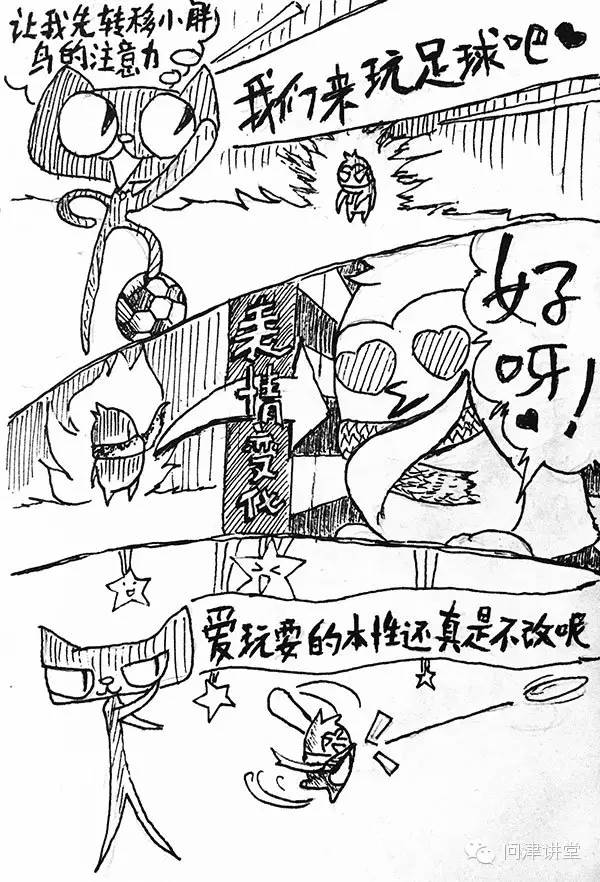 让我先转移小胖
鸟的注意力
我们来玩足球吧
表情变化
好
呀!
爱玩耍的本性还真是不改呢
问津讲堂